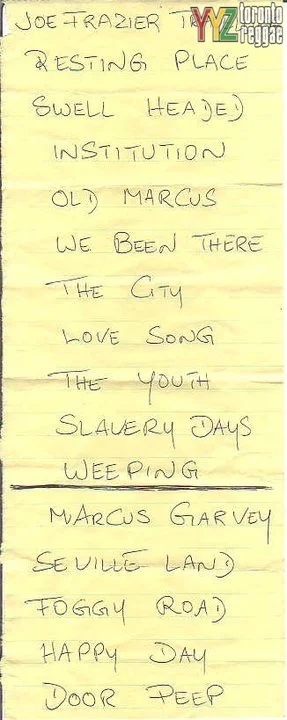 JOE FRAZIER
YYZ toronto reggae
RESTING PLACE
SWELL HEADED
INSTITUTION
OLD MARCUS
WE BEEN THERE
THE CITY
LOVE SONG
THE YOUTH
SLAVERY DAYS
WEEPING
MARCUS GARVEY
SEVILLE LAND
FOGGY ROAD
HAPPY DAY
DOOR PEEP